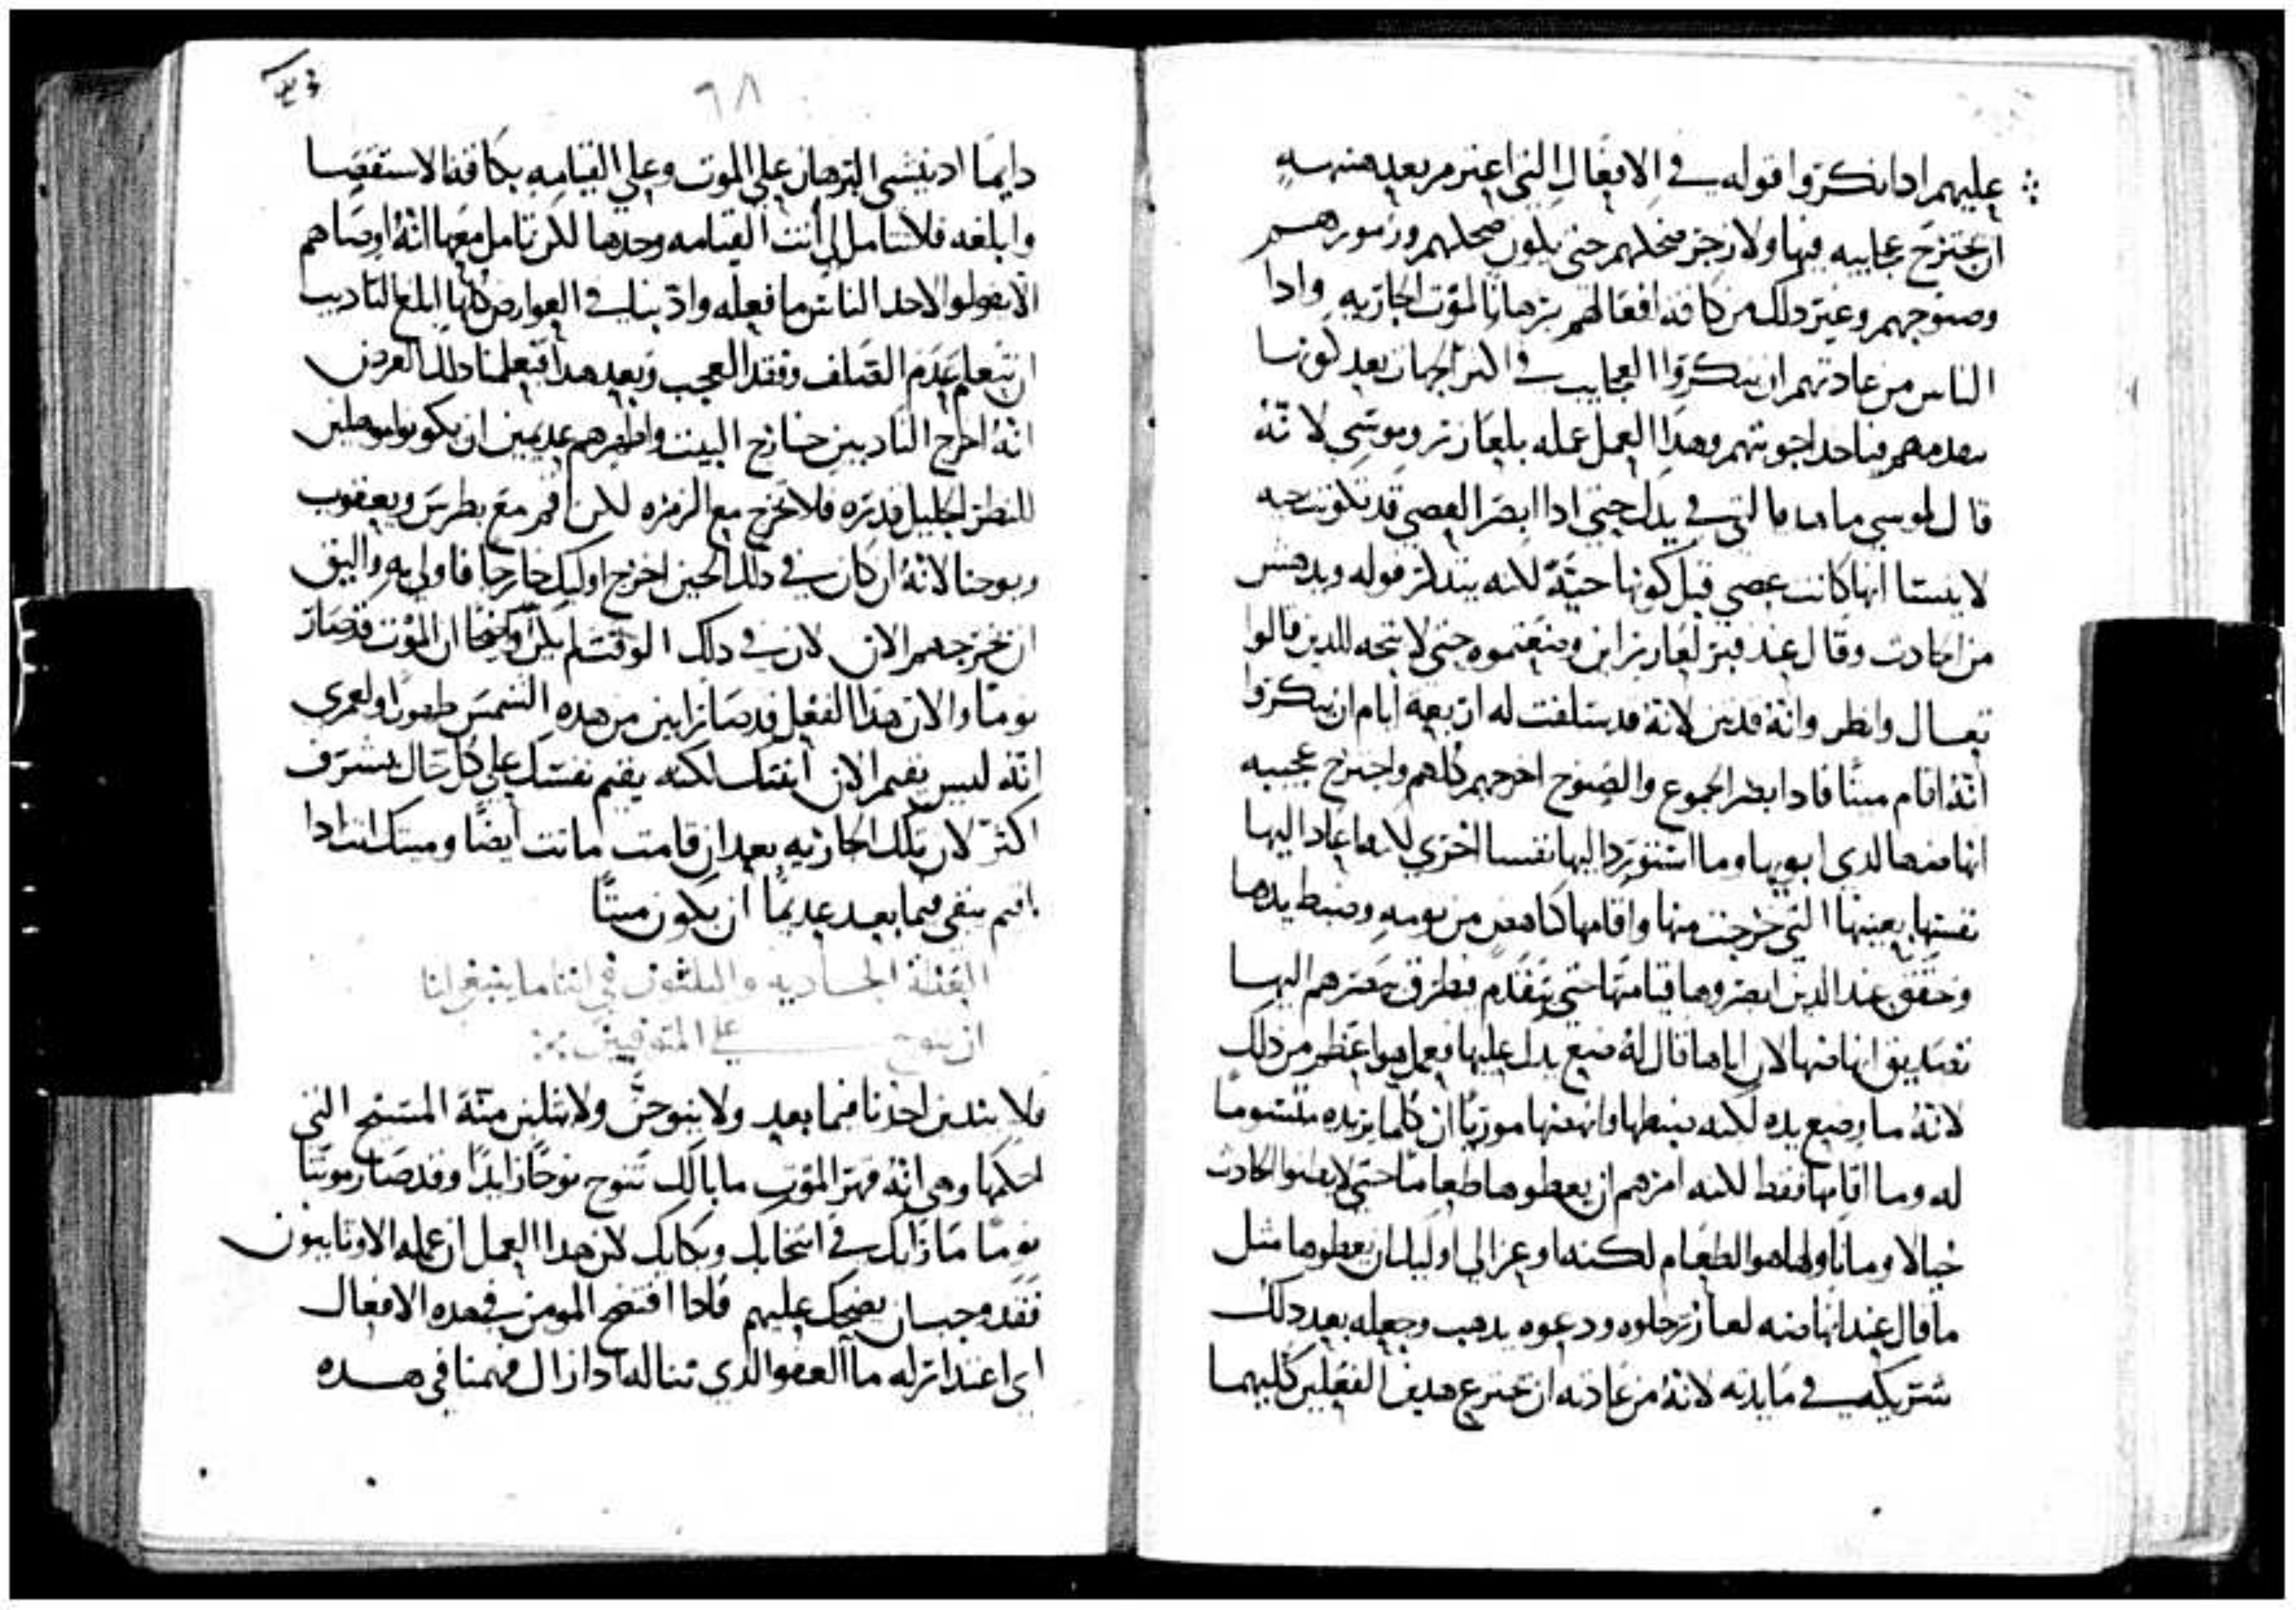 عليهم ادا نكروا قوله في الافعال التي اعتزم بعد هنيهه
ان يجترح عجايبه فيها ولا زجر ضحكهم حتي يكون ضحكهم وزمورهم
وصنوجهم وغير دلك من كافه افعالهم برهانا لموت الجاريه وادا
الناس من عادتهم ان ينكروا العجايب في اكثر الجهات بعد كونها
تقدمهم فياخد اجوبتهم وهدا العمل عمله بلعازر وموسي لانه
قال لموسي ما هده التي في يدك حتي ادا ابصر العصي قد تكونت حيه
لا ينسا انها كانت عصي قبل كونها حيّة لكنه يتدكر قوله ويدهش
من الحادث وقال عند قبر لعازر اين وضعتموه حتي لا يتجه للدين قالوا
تعال وانظر وانه قد نتن لانه قد سلفت له اربعه ايام ان ينكروا
انه اقام ميتًا فادا ابصر الجموع والصنوج اخرجهم كلهم واجترح عجيبه
اليها نفسا اخري لكنه اعاد اليها
نفسها بعينها التي خرجت منها واقامها كناهض من نومه وضبط يدها
وحقق عند الدين ابصروها قيامتها حتي يتقدم فيطرق بصرهم اليها
تصديق انها لان اباها قال له ضع يدك عليها فعمل هو اعظم من دلك
لانه ما وضع يده لكنه ضبطها وانهضها موريًا ان كلما يريده
له وما اقامها فقط لكنه امرهم ان يعطوها طعامًا حتي لا يظنوا الحادث
خيالا وما ناولها هو الطعام لكنه اوعز الي اوليك ان يعطوها مثل
ما قال عند لعازر حلوه ودعوه يدهب وجعله بعد دلك
شريكه في مايدته لانه من عادته ان يخترع هدين الفعلين كليهما
٦٨
دايمًا اد ينشي البرهان علي الموت وعلي القيامه بكافة الاستقصا
وابلغه فلا تتامل لي انت القيامه وحدها لكن تامل معها انه اوصاهم
الا يقولوا لاحد الناس ما فعله وادّبنا في العوارض كلها ابلغ التاديب
ان نتعلم عدم الصلف وفقد العجب وبعد هدا فتعلمنا دلك الغرض
انه اخرج النادبين خارج البيت واظهرهم عديمين ان يكونوا موهلين
للنظر الجليل قدره فلا تخرج مع الزمره لكن اقم مع بطرس ويعقوب
ويوحنا لانه ان كان في دلك الحين اخرج اوليك خارجا فاولي به واليق
ان يخرجهم الان لان في دلك الوقت لم يكن واضحًا ان الموت قد صار
نومًا والان هدا الفعل قد صار ابين من هده الشمس ظهورًا ولعمري
انه ليس يقيم الان ابنتك لكنه يقيم نفسك علي كل حال بشرف
اكثر لان تلك الجاريه بعد ان قامت ماتت ايضًا وميتك انت ادا
اقيم يبقي فيما بعد عديمًا ان يكون ميتًا
العظة الحاديه والثلثون في اننا ما ينبغي لنا
ان ننوح علي المتوفين
فلا يندبن احدنا فيما بعد ولا ينوحن ولا يثلبن منة المسيح التي
احكمها وهي انه قهر الموت ما بالك تنوح نوحًا زايدًا وقد صار موتنا
نومًا ما رايك في انتحابك وبكايك لان هدا العمل ان عمله الاوثانيون
فقد وجب ان يضحك عليهم فادا افتضح المومن في هده الافعال
اي اعتدار له ما العفو الدي تناله ادا زال فهمنا في هده